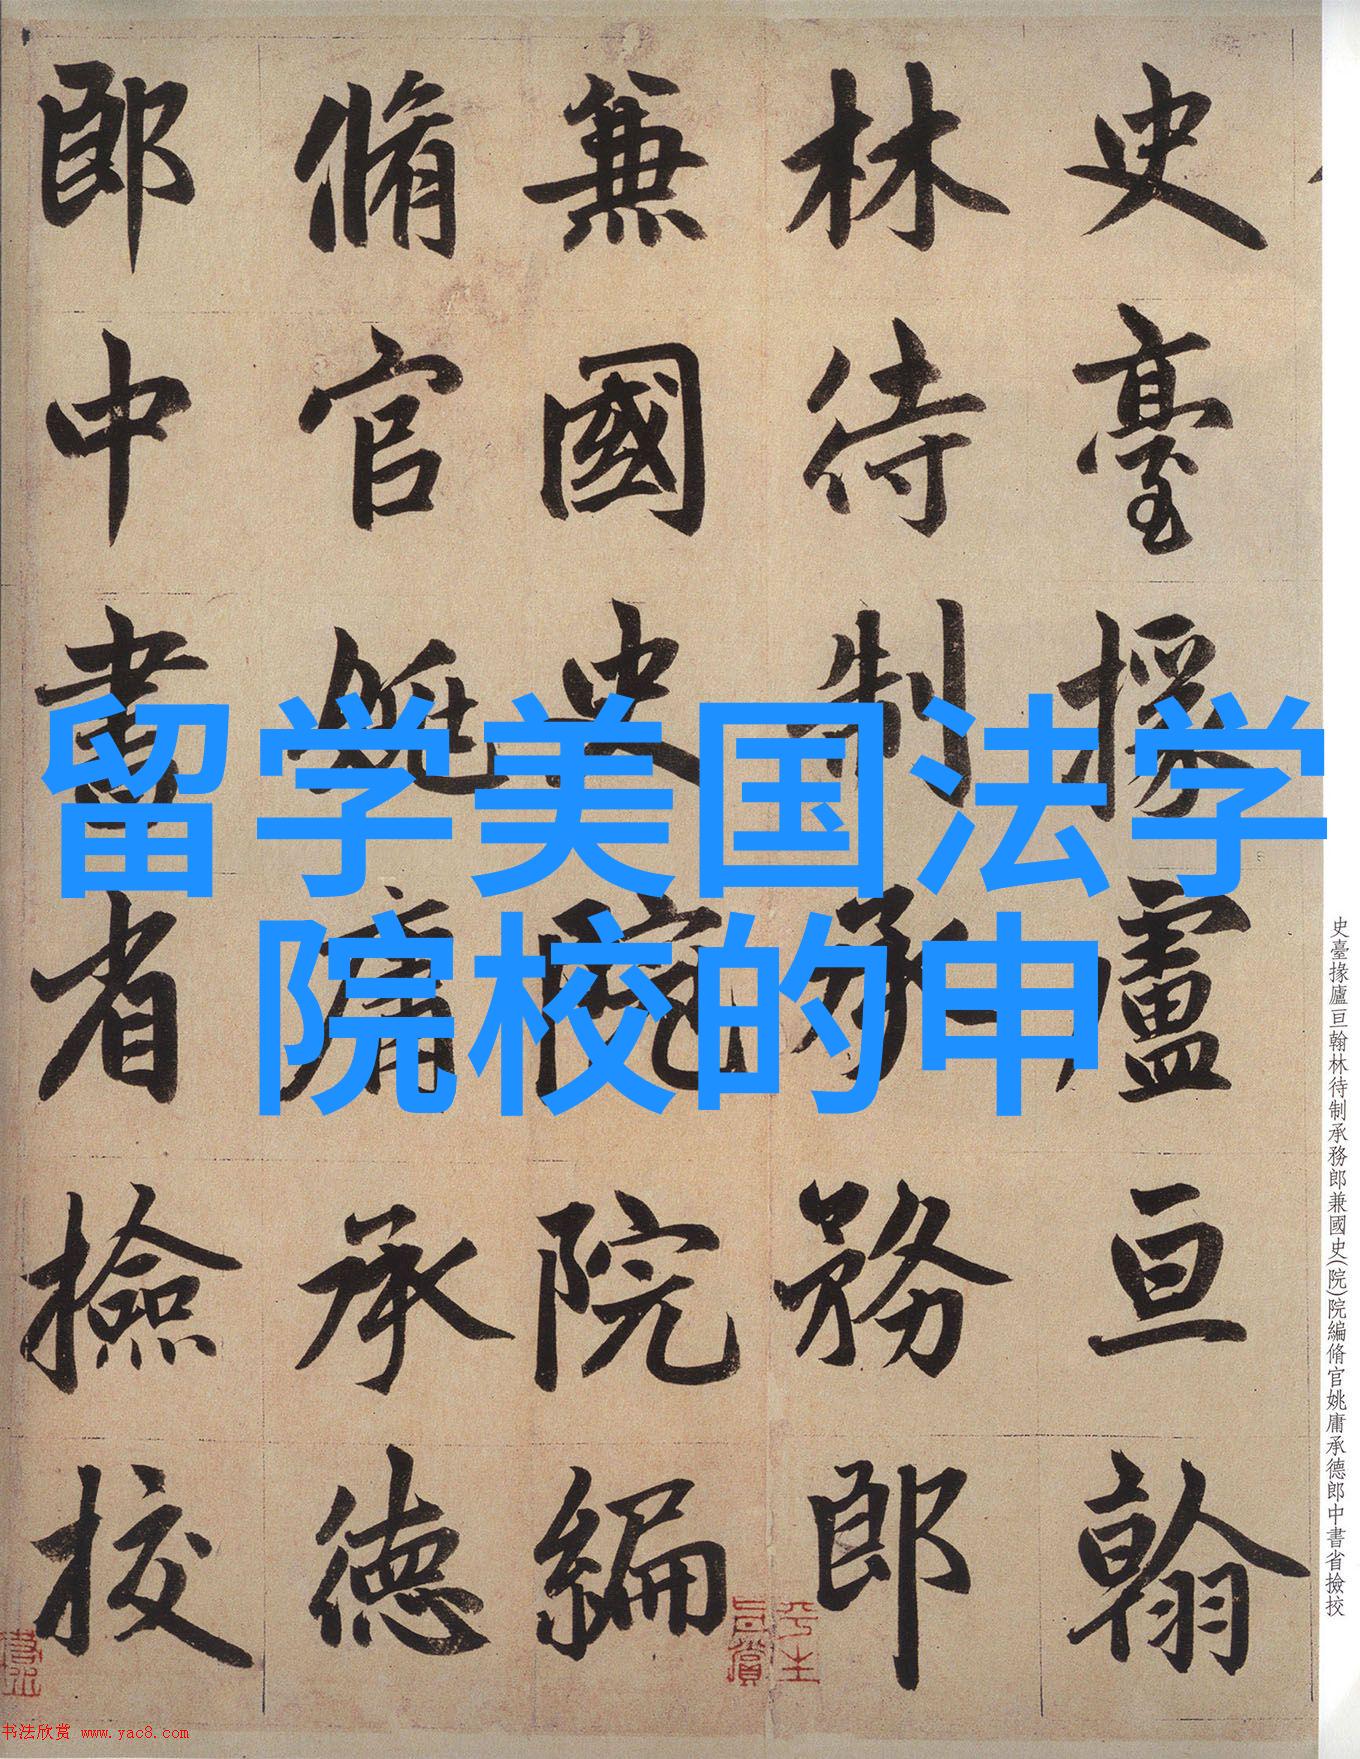 史臺掾廬亘翰
林待制承務郎
兼國史院院編
脩官姚庸承德
郎中書省撿挍
留学美国法学
院校的申
史臺掾廬亘翰林待制承務郎兼國史(院)院編脩官姚庸承德郎中書省撿挍
平生
真賞
书法欣赏 www.yac8.com